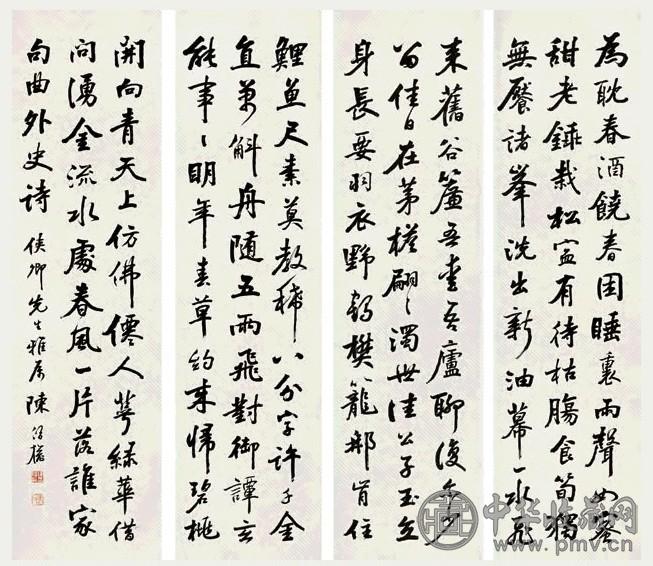 為耽春酒饒春困睡裏雨聲如蜜
甜老鋒栽松宜有待枯腸食筍獨
無饜諸峯洗出新油幕一水飛
來舊谷簾吾愛吾廬聊復爾
留佳日在茅檐翩〻濁世佳公子玉立
身長要羽衣野鶴樊籠那肯住
鯉魚尺素莫教稀八分字許千金
直萬斛舟隨五兩飛對御譚玄
能事〻明年春草約來歸碧桃
開向青天上仿佛僊人萼綠華借
問湧金流水處春風一片落誰家
句曲外史詩 俠卿先生雅屬 陳
中华收藏网
www.pmv.cn